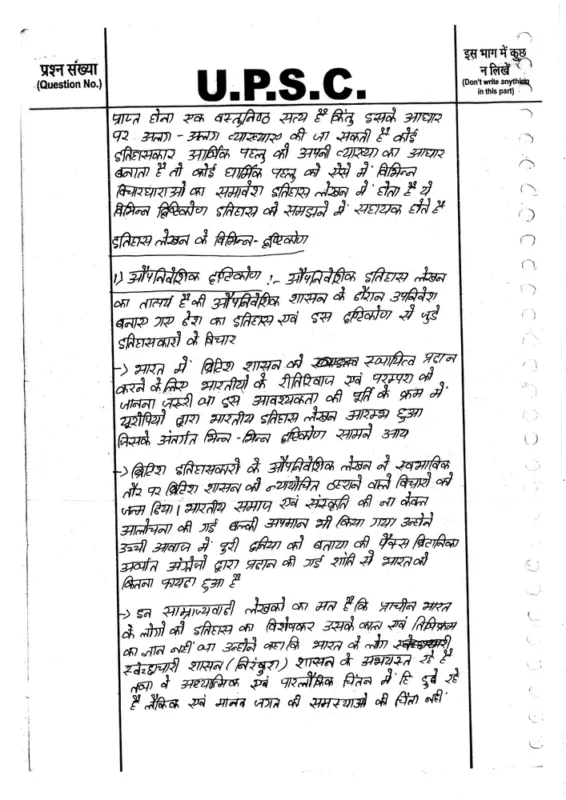 प्रश्न संख्या
(Question No.)
U.P.S.C.
इस भाग में कुछ
न लिखें
(Don't write anything
in this part)
प्राप्त होना एक वस्तुनिष्ठ सत्य है किंतु इसके आधार
पर अलग - अलग व्याख्याए की जा सकती है कोई
इतिहासकार आर्थिक पहलु को अपनी व्याख्या का आधार
बनाता है तो कोई धार्मिक पहलु को ऐसे में विभिन्न
विचारधाराओ का समावेश इतिहास लेखन में होता है ये
विभिन्न द्रिष्टिकोण इतिहास को समझने में सहायक होते है
इतिहास लेखन के विभिन्न - दृष्टिकोण
1) औपनिवेशिक दृष्टिकोण :- औपनिवेशिक इतिहास लेखन
का तात्पर्य है की औपनिवेशिक शासन के दौरान उपनिवेश
बनाए गए देश का इतिहास एवं इस दृष्टिकोण से जुडे
इतिहासकारो के विचार
-> भारत में ब्रिटिश शासन को स्थायित्व प्रदान
करने के लिए भारतीयों के रीतिरिवाज एवं परम्परा को
जानना जरूरी था इस आवश्यकता की पूर्ति के क्रम में
यूरोपियो द्वारा भारतीय इतिहास लेखन आरम्भ हुआ
जिसके अंतर्गत भिन्न - भिन्न दृष्टिकोण सामने आय
-> ब्रिटिश इतिहासकारो के औपनिवेशिक लेखन ने स्वभाविक
तौर पर ब्रिटिश शासन को न्यायोचित ठहराने वाले विचारो को
जन्म दिया। भारतीय समाज एवं संस्कृति की ना केवल
आलोचना की गई बल्की अपमान भी किया गया उन्होने
उच्ची आवाज में पुरी दुनिया को बताया की पैक्स ब्रिटानिका
अर्थात अंग्रेजो द्वारा प्रदान की गई शांति से भारत को
कितना फायदा हुआ है
-> इन साम्राज्यवादी लेखको का मत है कि प्राचीन भारत
के लोगो को इतिहास का विशेषकर उसके काल एवं तिथिक्रम
का ज्ञान नहीं था उन्होने कहा कि भारत के लोग
स्वेच्छाचारी शासन (निरंकुश) शासन के अभयस्त रहे है
तथा वे अध्यात्मिक एवं पारलौकिक चिंतन में हि डुबे रहे
है लौकिक एवं मानव जगत की समस्याओ की चिंता नहीं